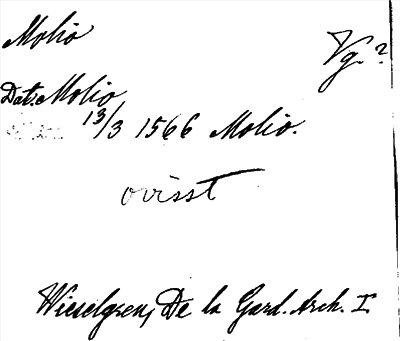 Molio
Vg.?
Dat. Molio
13/3 1566 Molio.
ovisst
Wieselgren, De la Gard. Arch. I